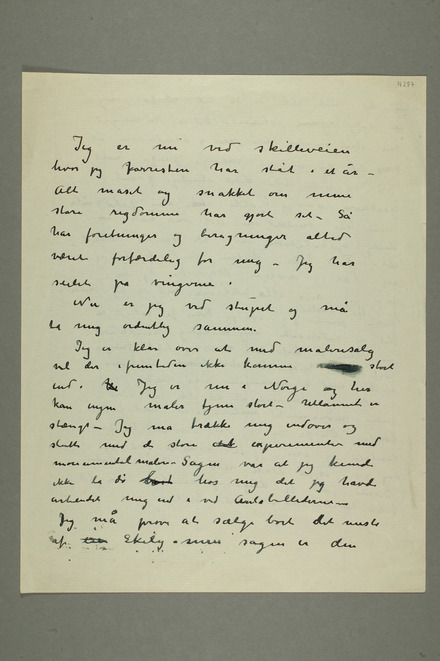 N 287
Jeg er nu ved skilleveien
hvor jeg forresten har ståt i et år –
Alt maset og snakket om mine
store rigdomme har gjort sit – Så
har foretninger og beregninger altid
været forfærdelig for mig – Jeg har
seilet på vingerne.
Nu er jeg ved stupet og må
ta mig ordentlig sammen.
Jeg er klar over at med malerisalg
vil der i fremtiden ikke komme stort
ind. Jeg er nu i Norge og her
kan ingen maler tjene stort – Utlannet er
stængt – Jeg må trække mig indover og
slutte med de store experimenter med
monumentalmaleri – Sagen var at jeg kunde
ikke la bo hos mig det jeg havde
arbeidet mig ind i ved Aulabillederne –
Jeg må prøve at sælge bort det meste
af Ekely – min sagen er den